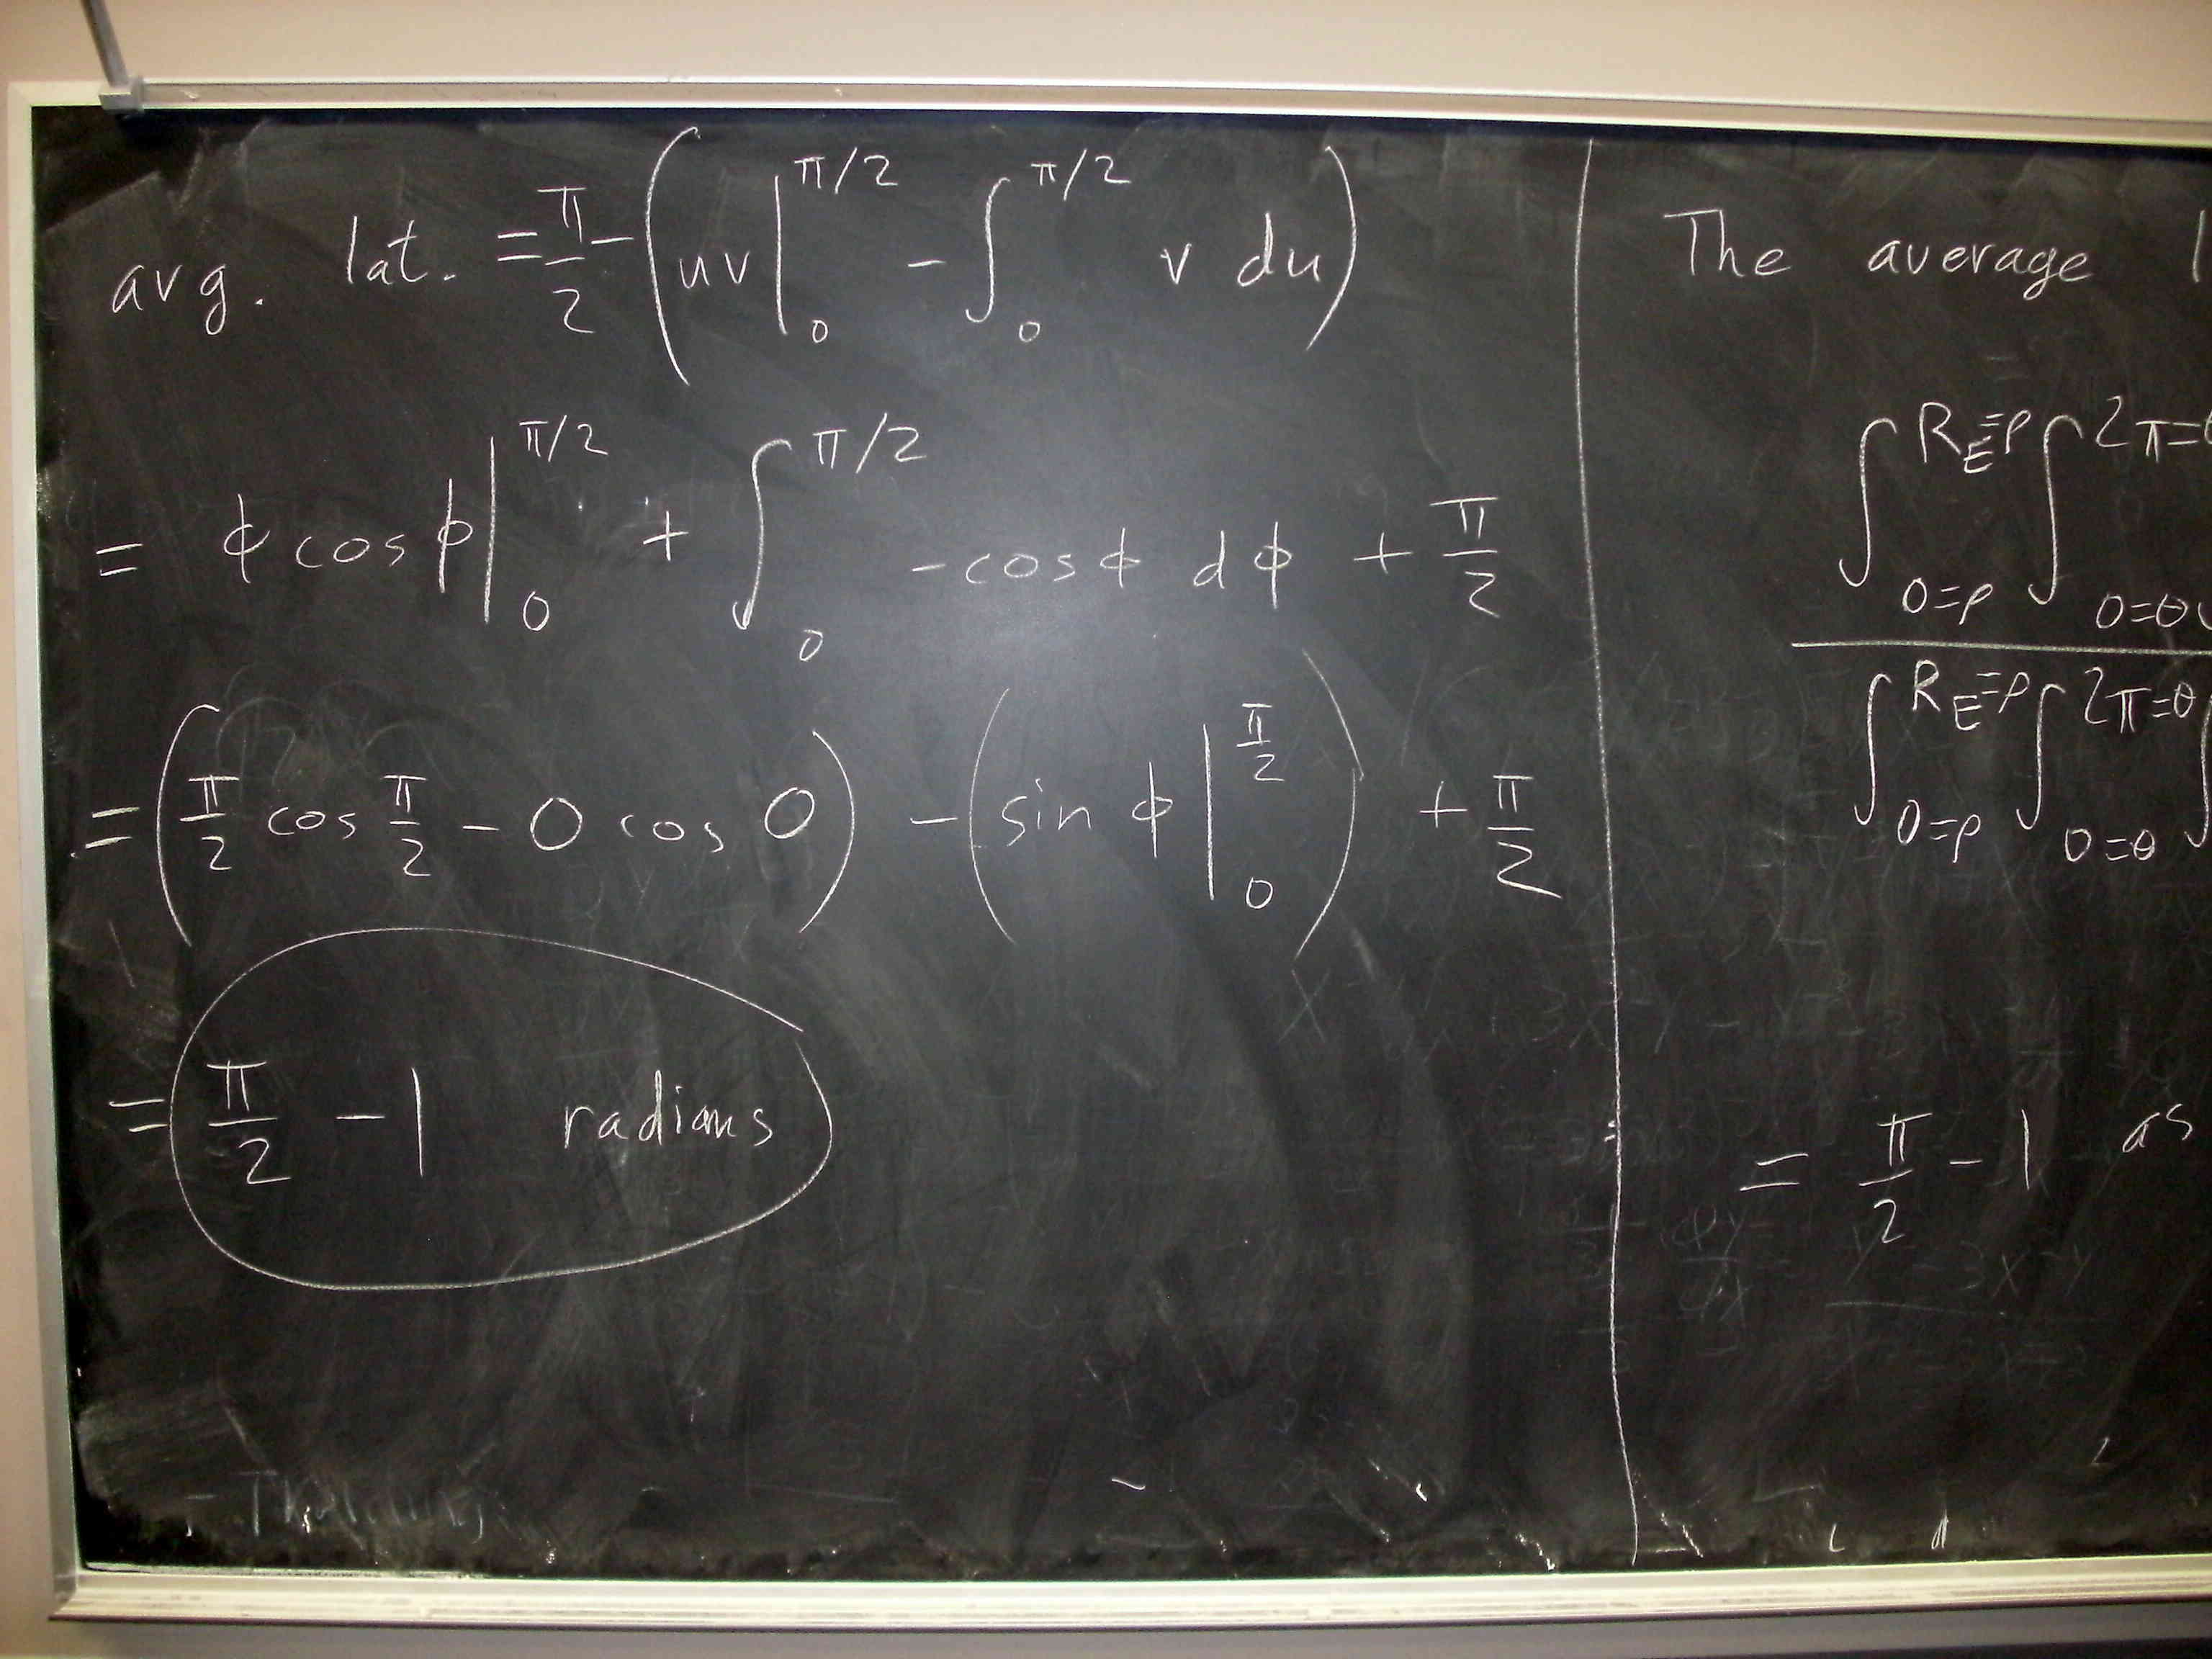 avg. lat. = π/2 - (uv|₀^π/2 - ∫₀^π/2 v du)
= ϕ cos ϕ|₀^π/2 + ∫₀^π/2 -cos ϕ dϕ + π/2
= (π/2 cos π/2 - 0 cos 0) - (sin ϕ|₀^π/2) + π/2
= π/2 - 1 radians
The average
∫_0=ρ^R_E=ρ ∫_0=θ^2π=
∫_0=ρ^R_E=ρ ∫_0=θ^2π=θ ∫
= π/2 - 1 as